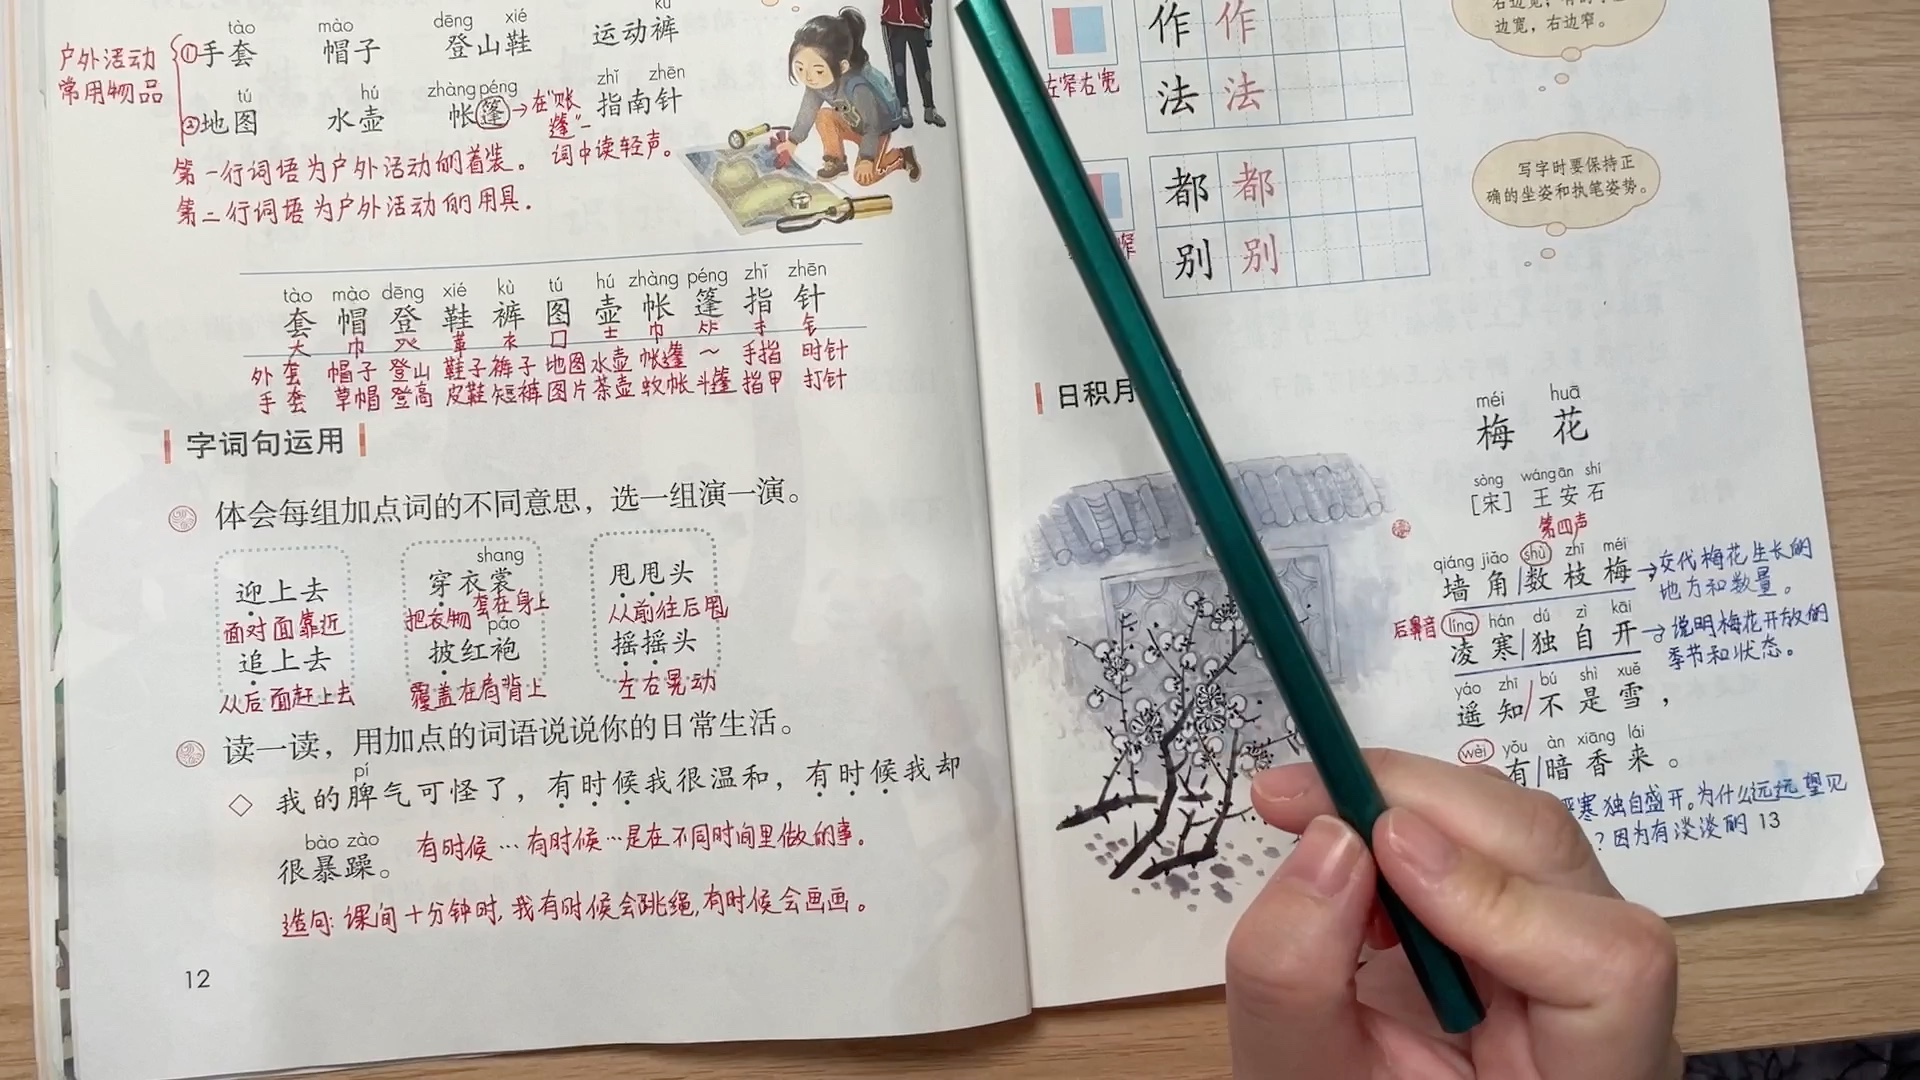 tào mào dēng xié kù
户外活动
常用物品
①手套 帽子 登山鞋 运动裤
tú hú zhàng péng zhǐ zhēn
②地图 水壶 帐篷 指南针
→在“账篷”一词中读轻声。
第一行词语为户外活动的着装。
第二行词语为户外活动的用具.
tào mào dēng xié kù tú hú zhàng péng zhǐ zhēn
套 帽 登 鞋 裤 图 壶 帐 篷 指 针
大 巾 癶 革 衣 囗 士 巾 竹 扌 钅
外套 帽子 登山 鞋子 裤子 地图 水壶 帐篷 ～ 手指 时针
手套 草帽 登高 皮鞋 短裤 图片 茶壶 蚊帐 斗篷 指甲 打针
字词句运用
体会每组加点词的不同意思，选一组演一演。
迎上去
面对面靠近
追上去
从后面赶上去
shang
穿衣裳
把衣物套在身上
páo
披红袍
覆盖在肩背上
甩甩头
从前往后甩
摇摇头
左右晃动
读一读，用加点的词语说说你的日常生活。
pí
◇ 我的脾气可怪了，有时候我很温和，有时候我却
bào zào
很暴躁。
有时候…有时候…是在不同时间里做的事。
造句:课间十分钟时,我有时候会跳绳,有时候会画画。
12
右边宽，
边宽，右边窄。
作 作
左窄右宽
法 法
都 都
窄
别 别
写字时要保持正
确的坐姿和执笔姿势。
日积月
méi huā
梅 花
sòng wáng ān shí
[宋] 王安石
第四声
qiáng jiǎo shù zhī méi
墙角/数枝梅
→交代梅花生长的
地方和数量。
后鼻音
líng hán dú zì kāi
凌寒/独自开
→说明梅花开放的
季节和状态。
yáo zhī bú shì xuě
遥知/不是雪，
wèi yǒu àn xiāng lái
有/暗香来。
寒独自盛开。为什么远远望见
?因为有淡淡的
13